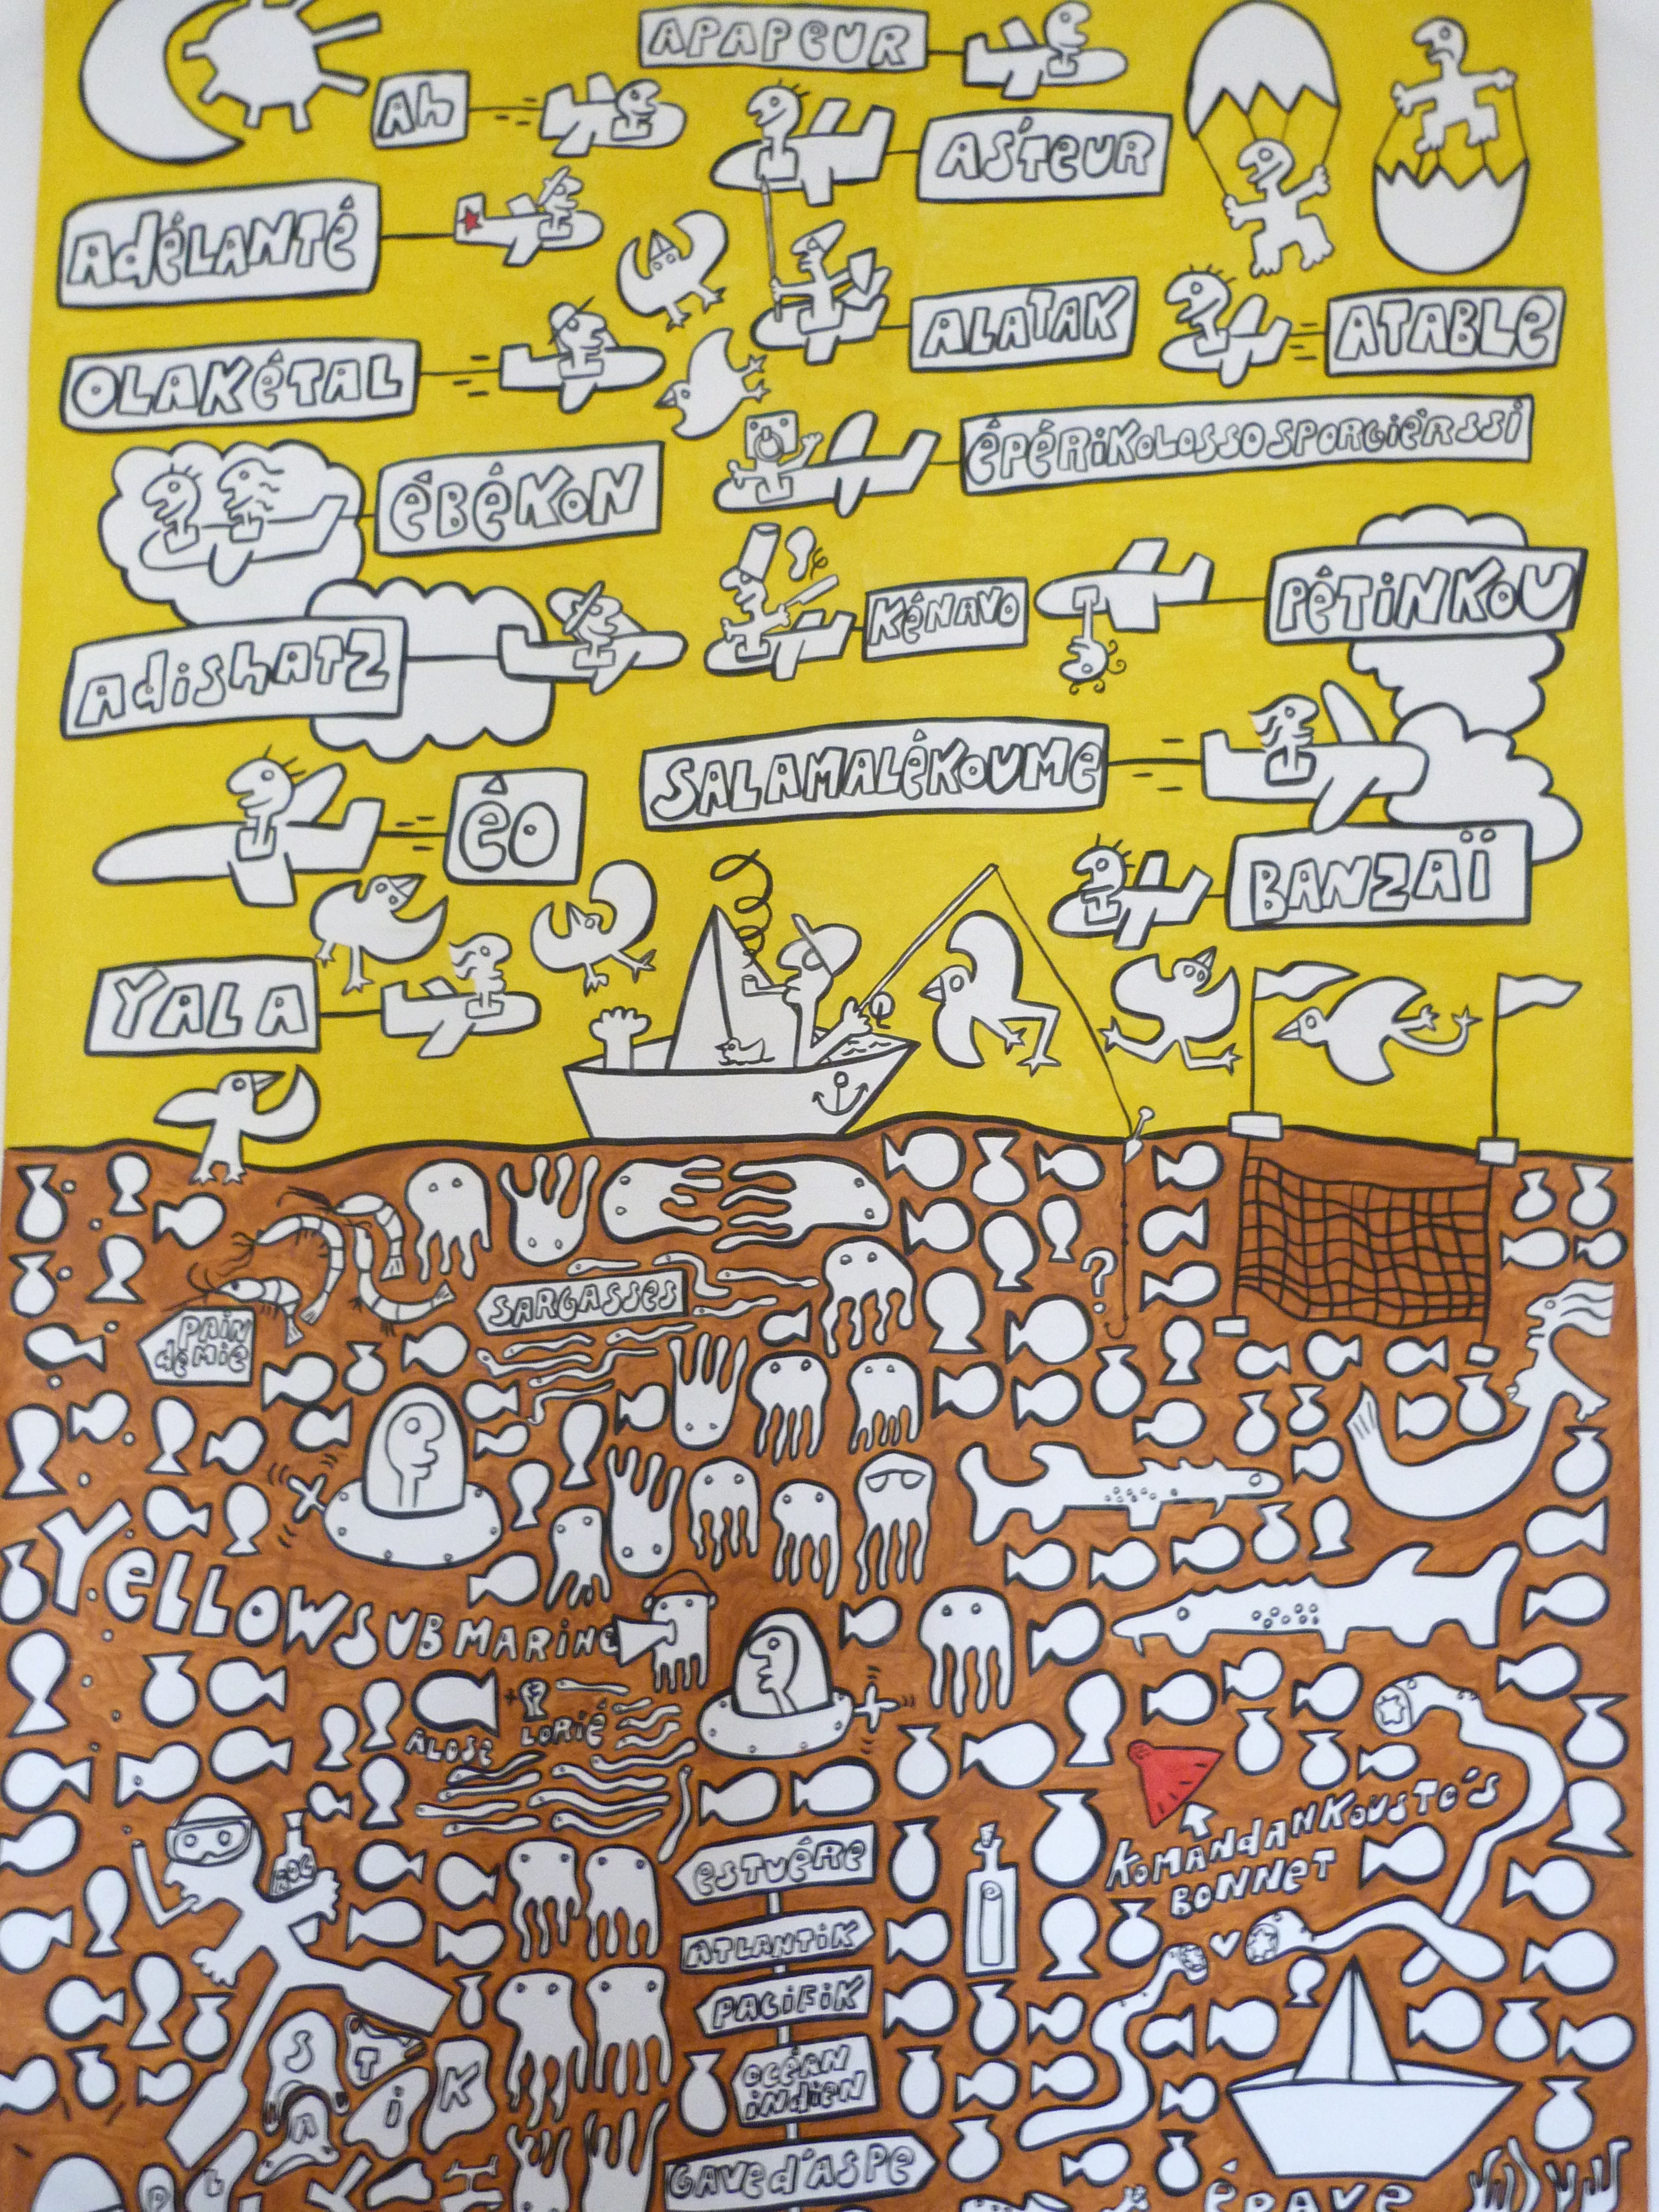 APAPEUR
Ah
AS'TEUR
AdÉLANTÉ
ALATAK
ATABLE
OLAKÉTAL
ÉPÉRiKOLOSSOSPORGiÈRSSi
ÉBÉKON
KÉNAVO
PÉTiNKOU
AdiShATZ
SALAMALÉKOUMe
ÉO
BANZAÏ
YALA
SARGASSES
PAiN
dE MiE
YeLLOW SUBMARiNe
ALOSE LORiÉ
KOMANdANKOUSTO'S
BONNET
ESTUÉRE
ATLANTiK
PACiFiK
OCÉAN
iNdiEN
GAVE d'ASPE
S T
A i K
ÉPAVE